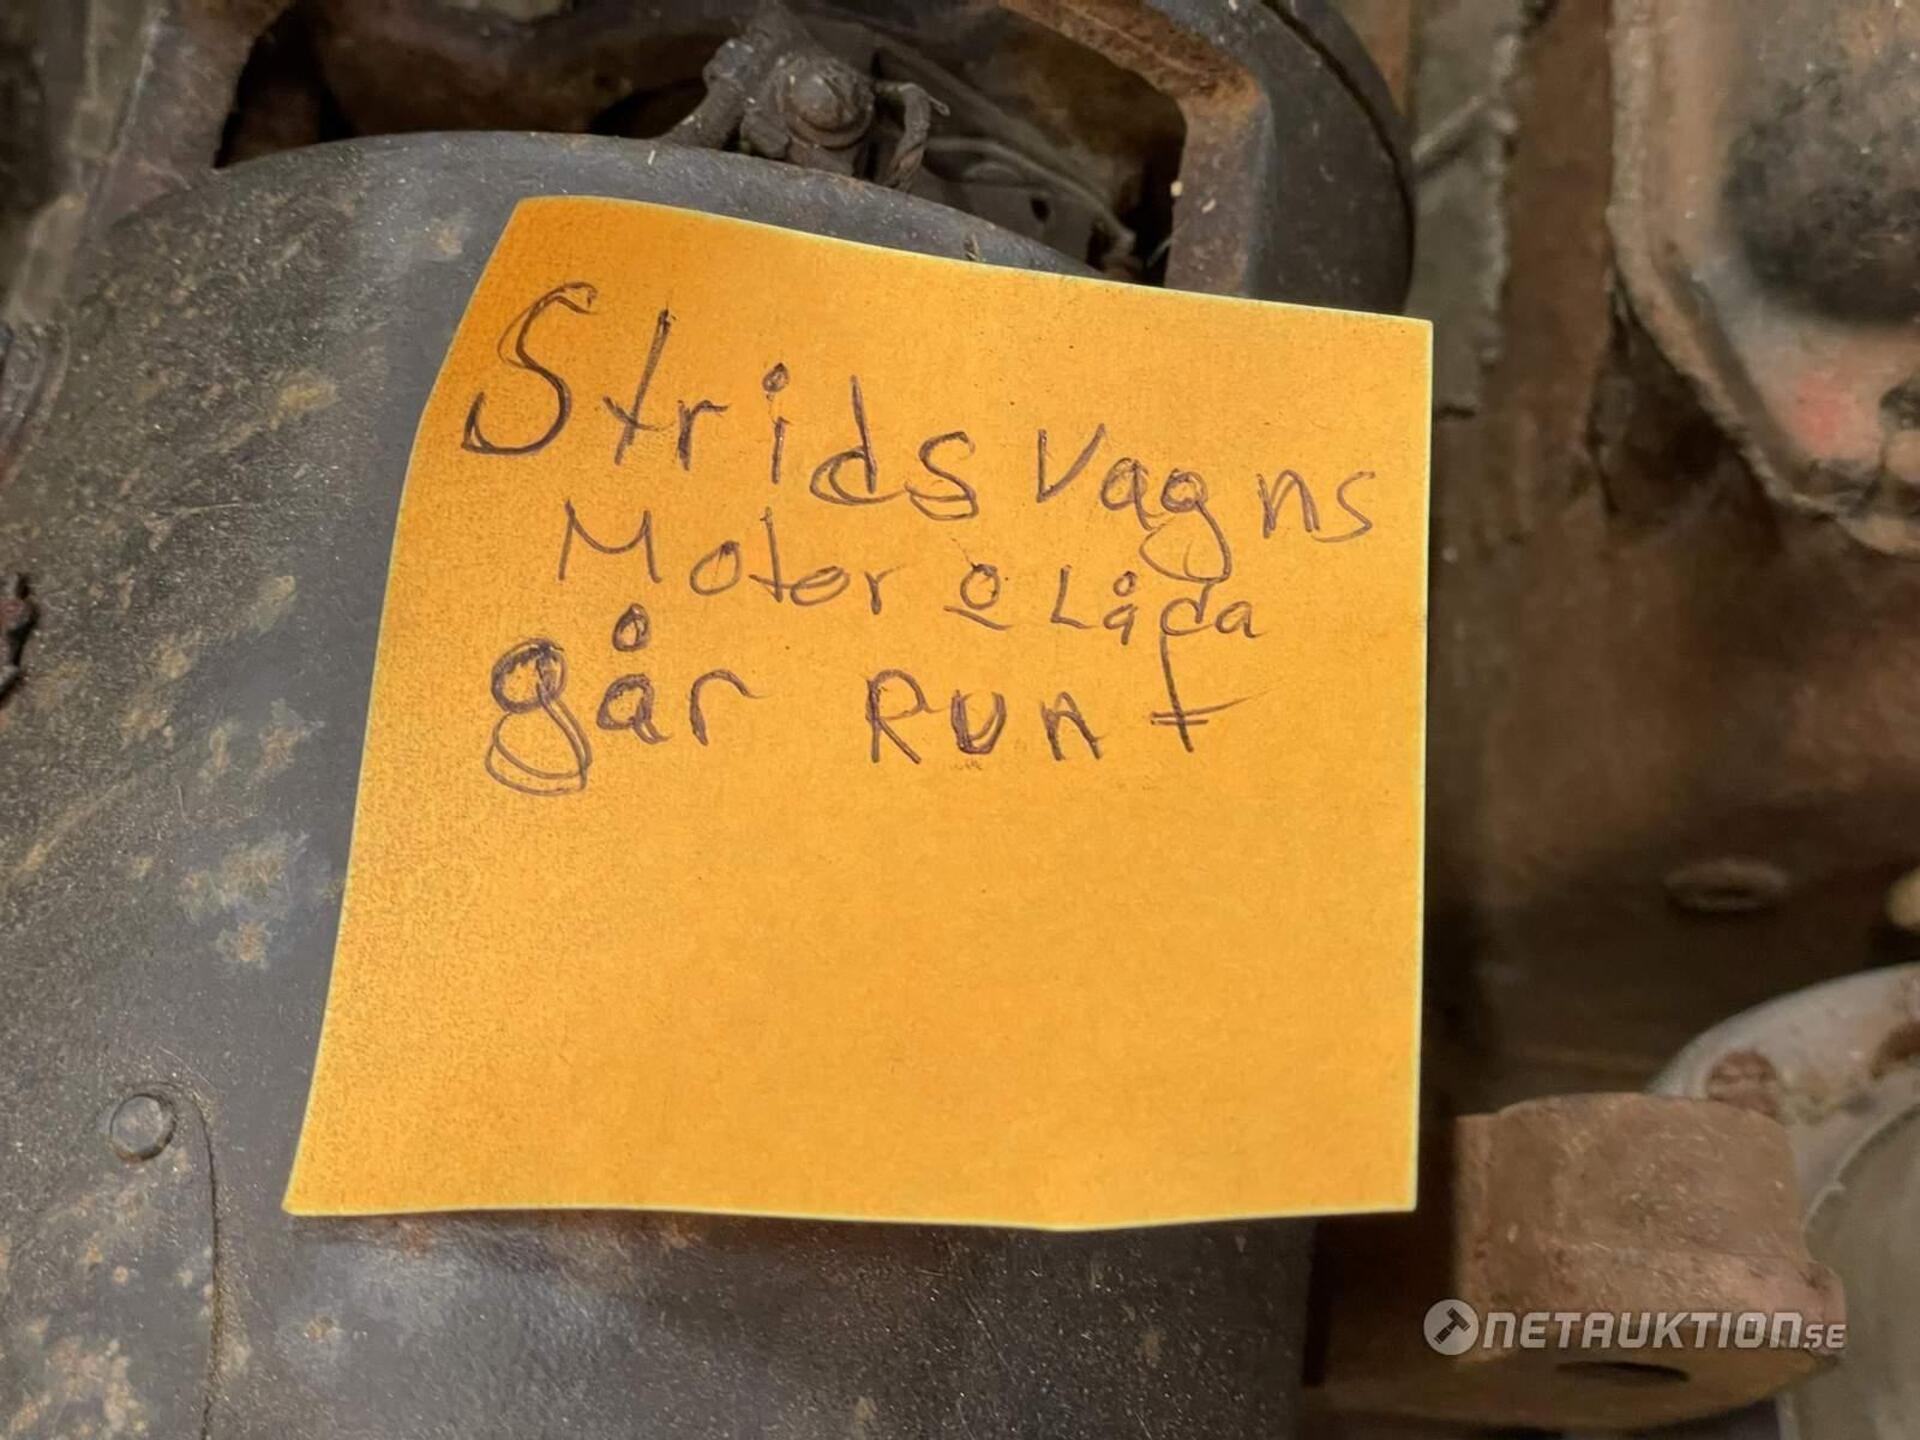 Strids Vagns
Motor o Låda
går Runt
NETAUKTION.SE